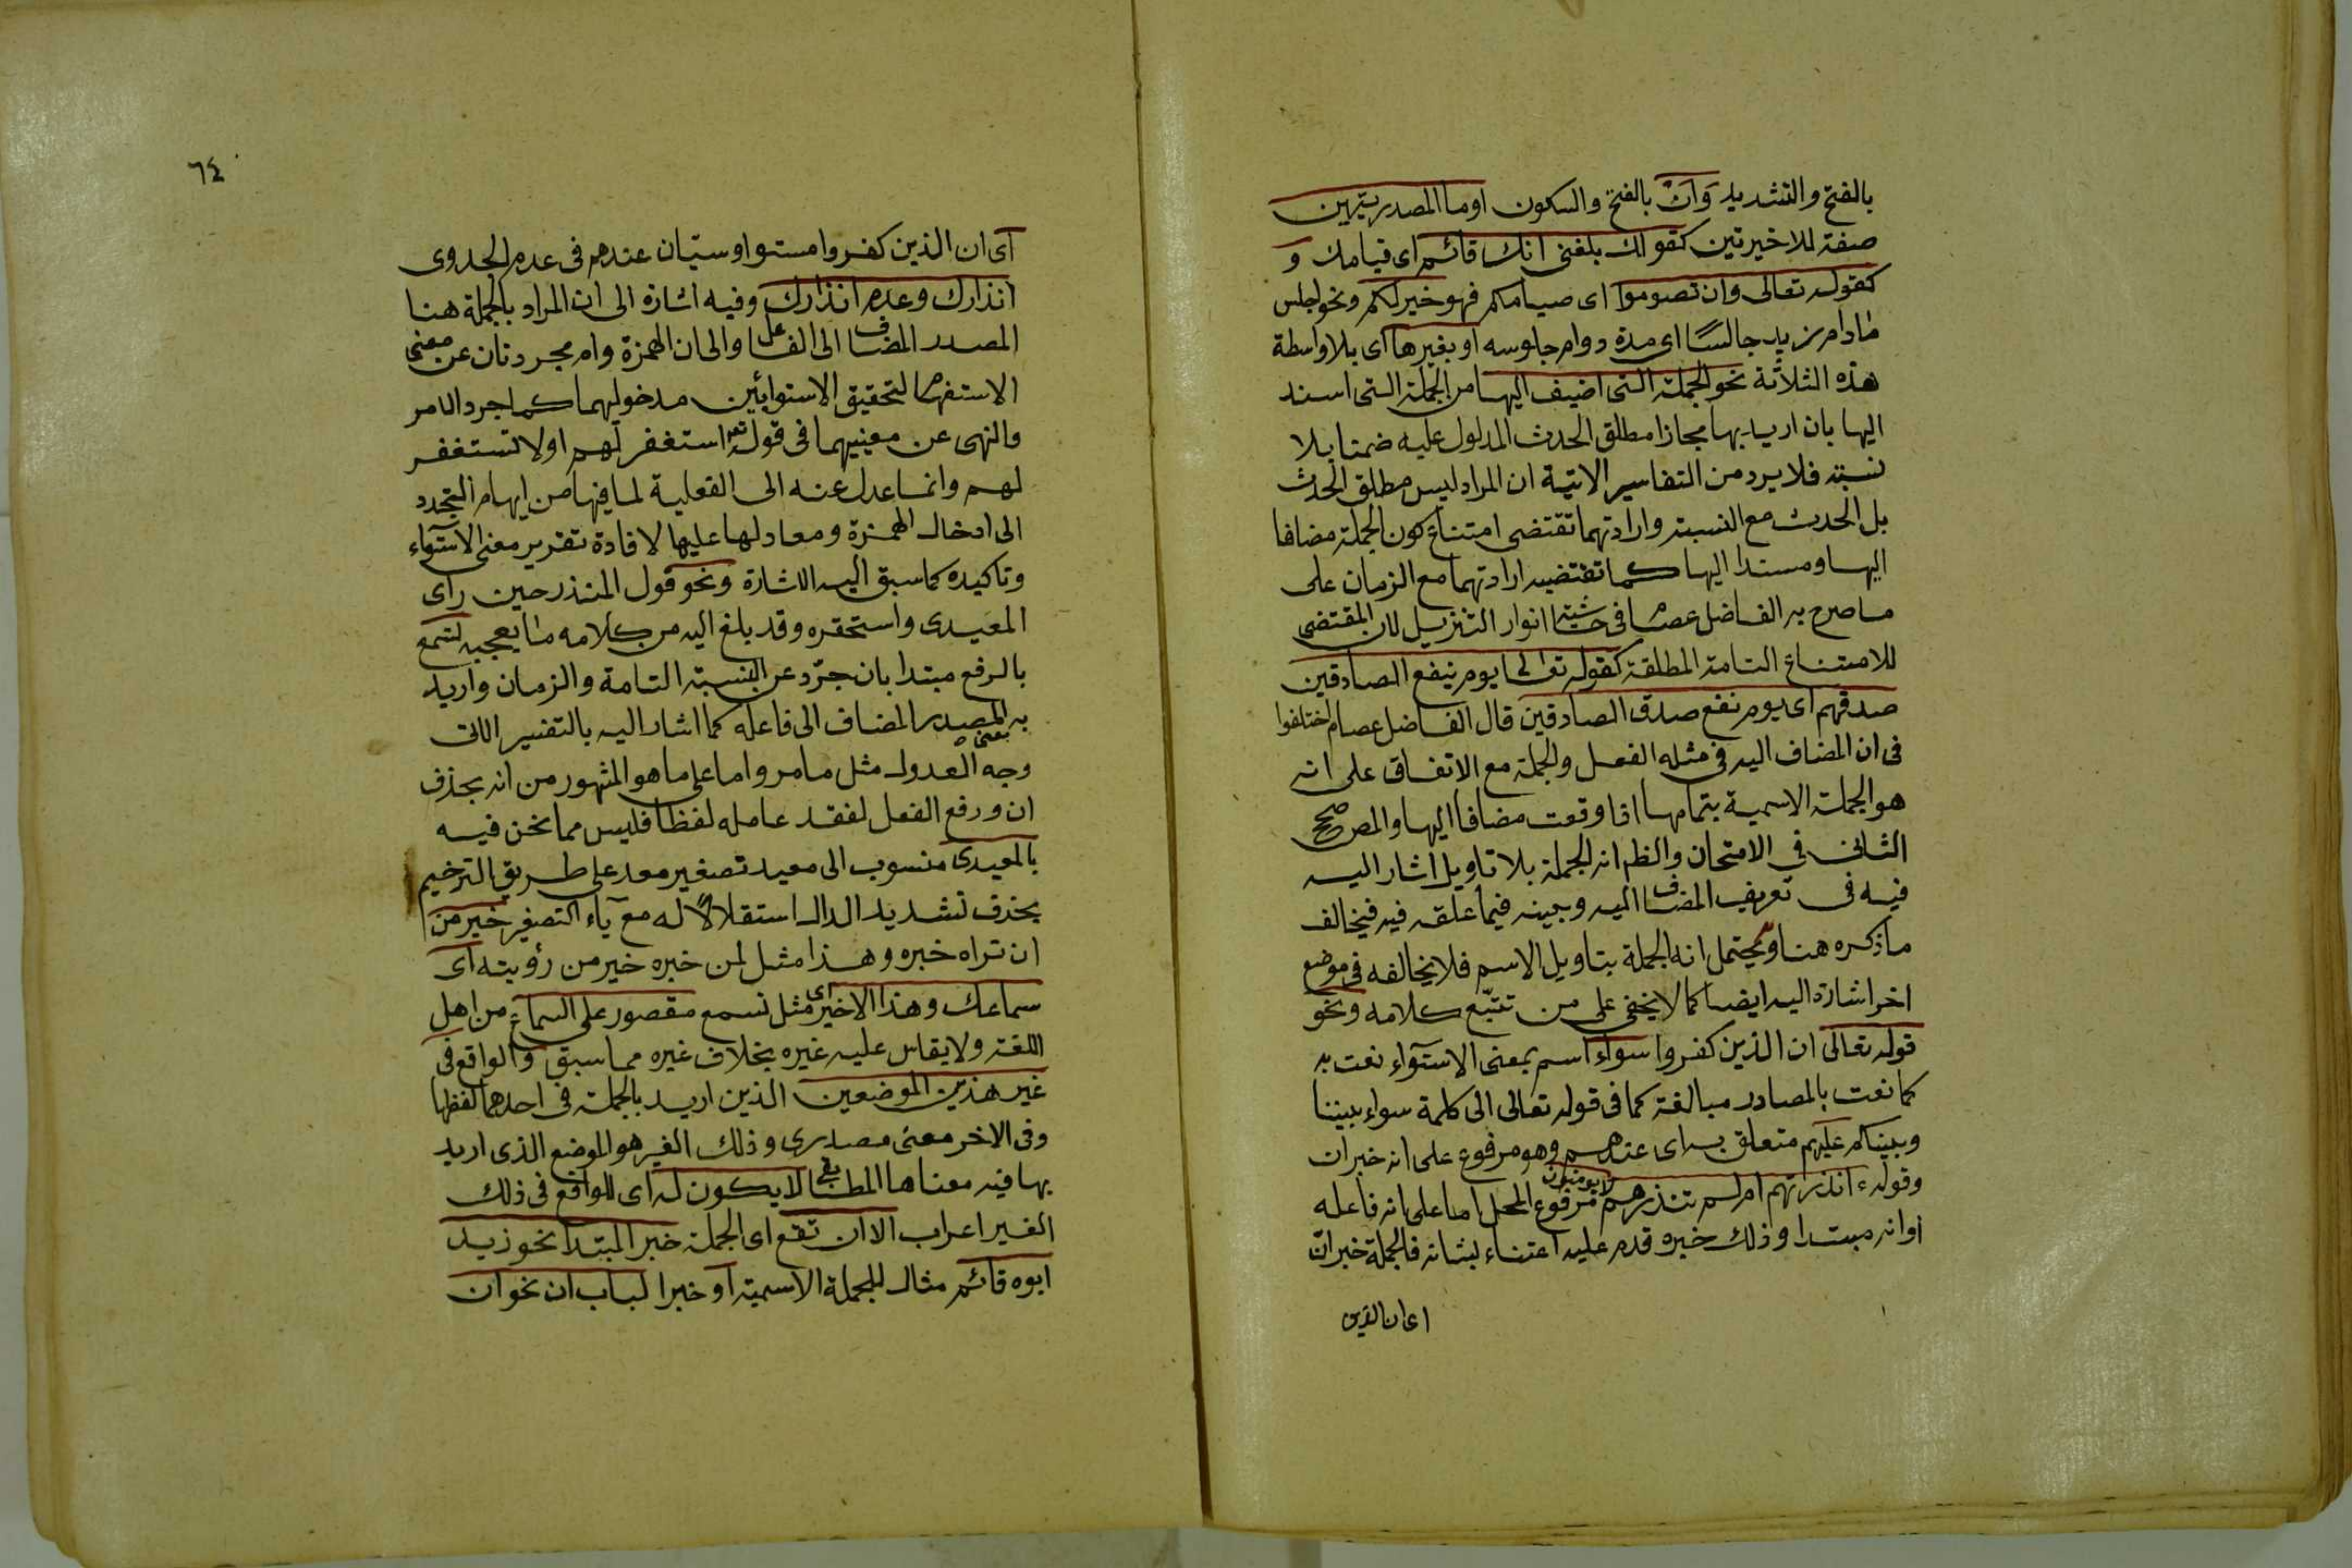 بالفتح والتشديد وَاَنْ بالفتح والسكون اوما المصدريتين
صفة للاخيرتين كقولك بلغنى انك قائم اى قيامك و
كقوله تعالى وان تصوموا اى صيامكم فهو خير لكم ونحو اجلس
مادام زيد جالسًا اى مدة دوام جلوسه او بغيرها اى بلا واسطة
هذه الثلاثة نحو الجملة التى اضيف اليها من الجملة التى اسند
اليها بان اريد بها مجازا مطلق الحدث المدلول عليه ضمنا بلا
نسبة فلا يرد من التفاسير الاتية ان المراد ليس مطلق الحدث
بل الحدث مع النسبة وارادتهما تقتضى امتناع كون الجملة مضافا
اليها ومسندا اليها كما تقتضيه ارادتهما مع الزمان على
ما صرح به الفاضل عصام فى حاشية انوار التنزيل لان المقتضى
للامتناع التامة المطلقة كقوله تعالى يوم ينفع الصادقين
صدقهم اى يوم نفع صدق الصادقين قال الفاضل عصام اختلفوا
فى ان المضاف اليه فى مثله الفعل والجملة مع الاتفاق على انه
هو الجملة الاسمية بتمامها اذا وقعت مضافا اليها والمص صحح
الثانى فى الامتحان والظم انه الجملة بلا تاويل اشار اليه
فيه فى تعريف المضاف اليه وبينه فيما علقه فيه فيخالف
ما ذكره هنا ويحتمل انه الجملة بتاويل الاسم فلا يخالفه فى موضع
اخر اشارة اليه ايضا كما لا يخفى على من تتبّع كلامه ونحو
قوله تعالى ان الذين كفروا سواء اسم بمعنى الاستواء نعت به
كما نعت بالمصادر مبالغة كما فى قوله تعالى الى كلمة سواء بيننا
وبينكم عليهم متعلق به اى عندهم وهو مرفوع على انه خبر ان
وقوله ءانذرتهم ام لم تنذرهم لا يؤمنون مرفوع المحل اما على انه فاعله
اوانه مبتدا وذلك خبره قدم عليه اعتناء بشانه فالجملة خبر انّ
اى ان الذين
٦٤
اى ان الذين كفروا مستو او سيّان عندهم فى عدم الجدوى
انذارك وعدم انذارك وفيه اشارة الى ان المراد بالجملة هنا
المصدر المضاف الى الفاعل والى ان الهمزة وام مجردتان عن معنى
الاستفهام لتحقيق الاستوائين مدخولهما كما جرد الامر
والنهى عن معنييهما فى قوله تع استغفر لهم اولا تستغفر
لهم وانما عدل عنه الى الفعلية لما فيها من ايهام التجدد
الى ادخال الهمزة ومعادلها عليها لافادة تقرير معنى الاستواء
وتاكيده كما سبق اليه الاشارة ونحو قول المنذر حين راى
المعيدى واستحقره وقد بلغ اليه من كلامه ما يعجبه تسمع
بالرفع مبتدا بان جرّد عن النسبة التامة والزمان واريد
به المصدر المضاف الى فاعله كما اشار اليه بالتفسير الاتى
وجه العدول مثل ما مر واما على ما هو المشهور من انه بحذف
ان ورفع الفعل لفقد عامله لفظا فليس مما نحن فيه
بالمعيدى منسوب الى معيد تصغير معد على طريق الترخيم
بحذف تشديد الدال استقلالًا له مع ياء التصغير خير من
ان تراه خبره وهذا مثل لمن خبره خير من رؤيته اى
سماعك وهذا الاخير اى مثل تسمع مقصور على السماع من اهل
اللغة ولا يقاس عليه غيره بخلاف غيره مما سبق والواقع فى
غير هذين الموضعين الذين اريد بالجملة فى احدهما لفظها
وفى الاخر معنى مصدرى وذلك الغير هو الموضع الذى اريد
بها فيه معناها المطابقى لا يكون له اى للواقع فى ذلك
الغير اعراب الا ان تقع اى الجملة خبر المبتدا نحو زيد
ابوه قائم مثال للجملة الاسمية او خبرا لباب ان نحو ان